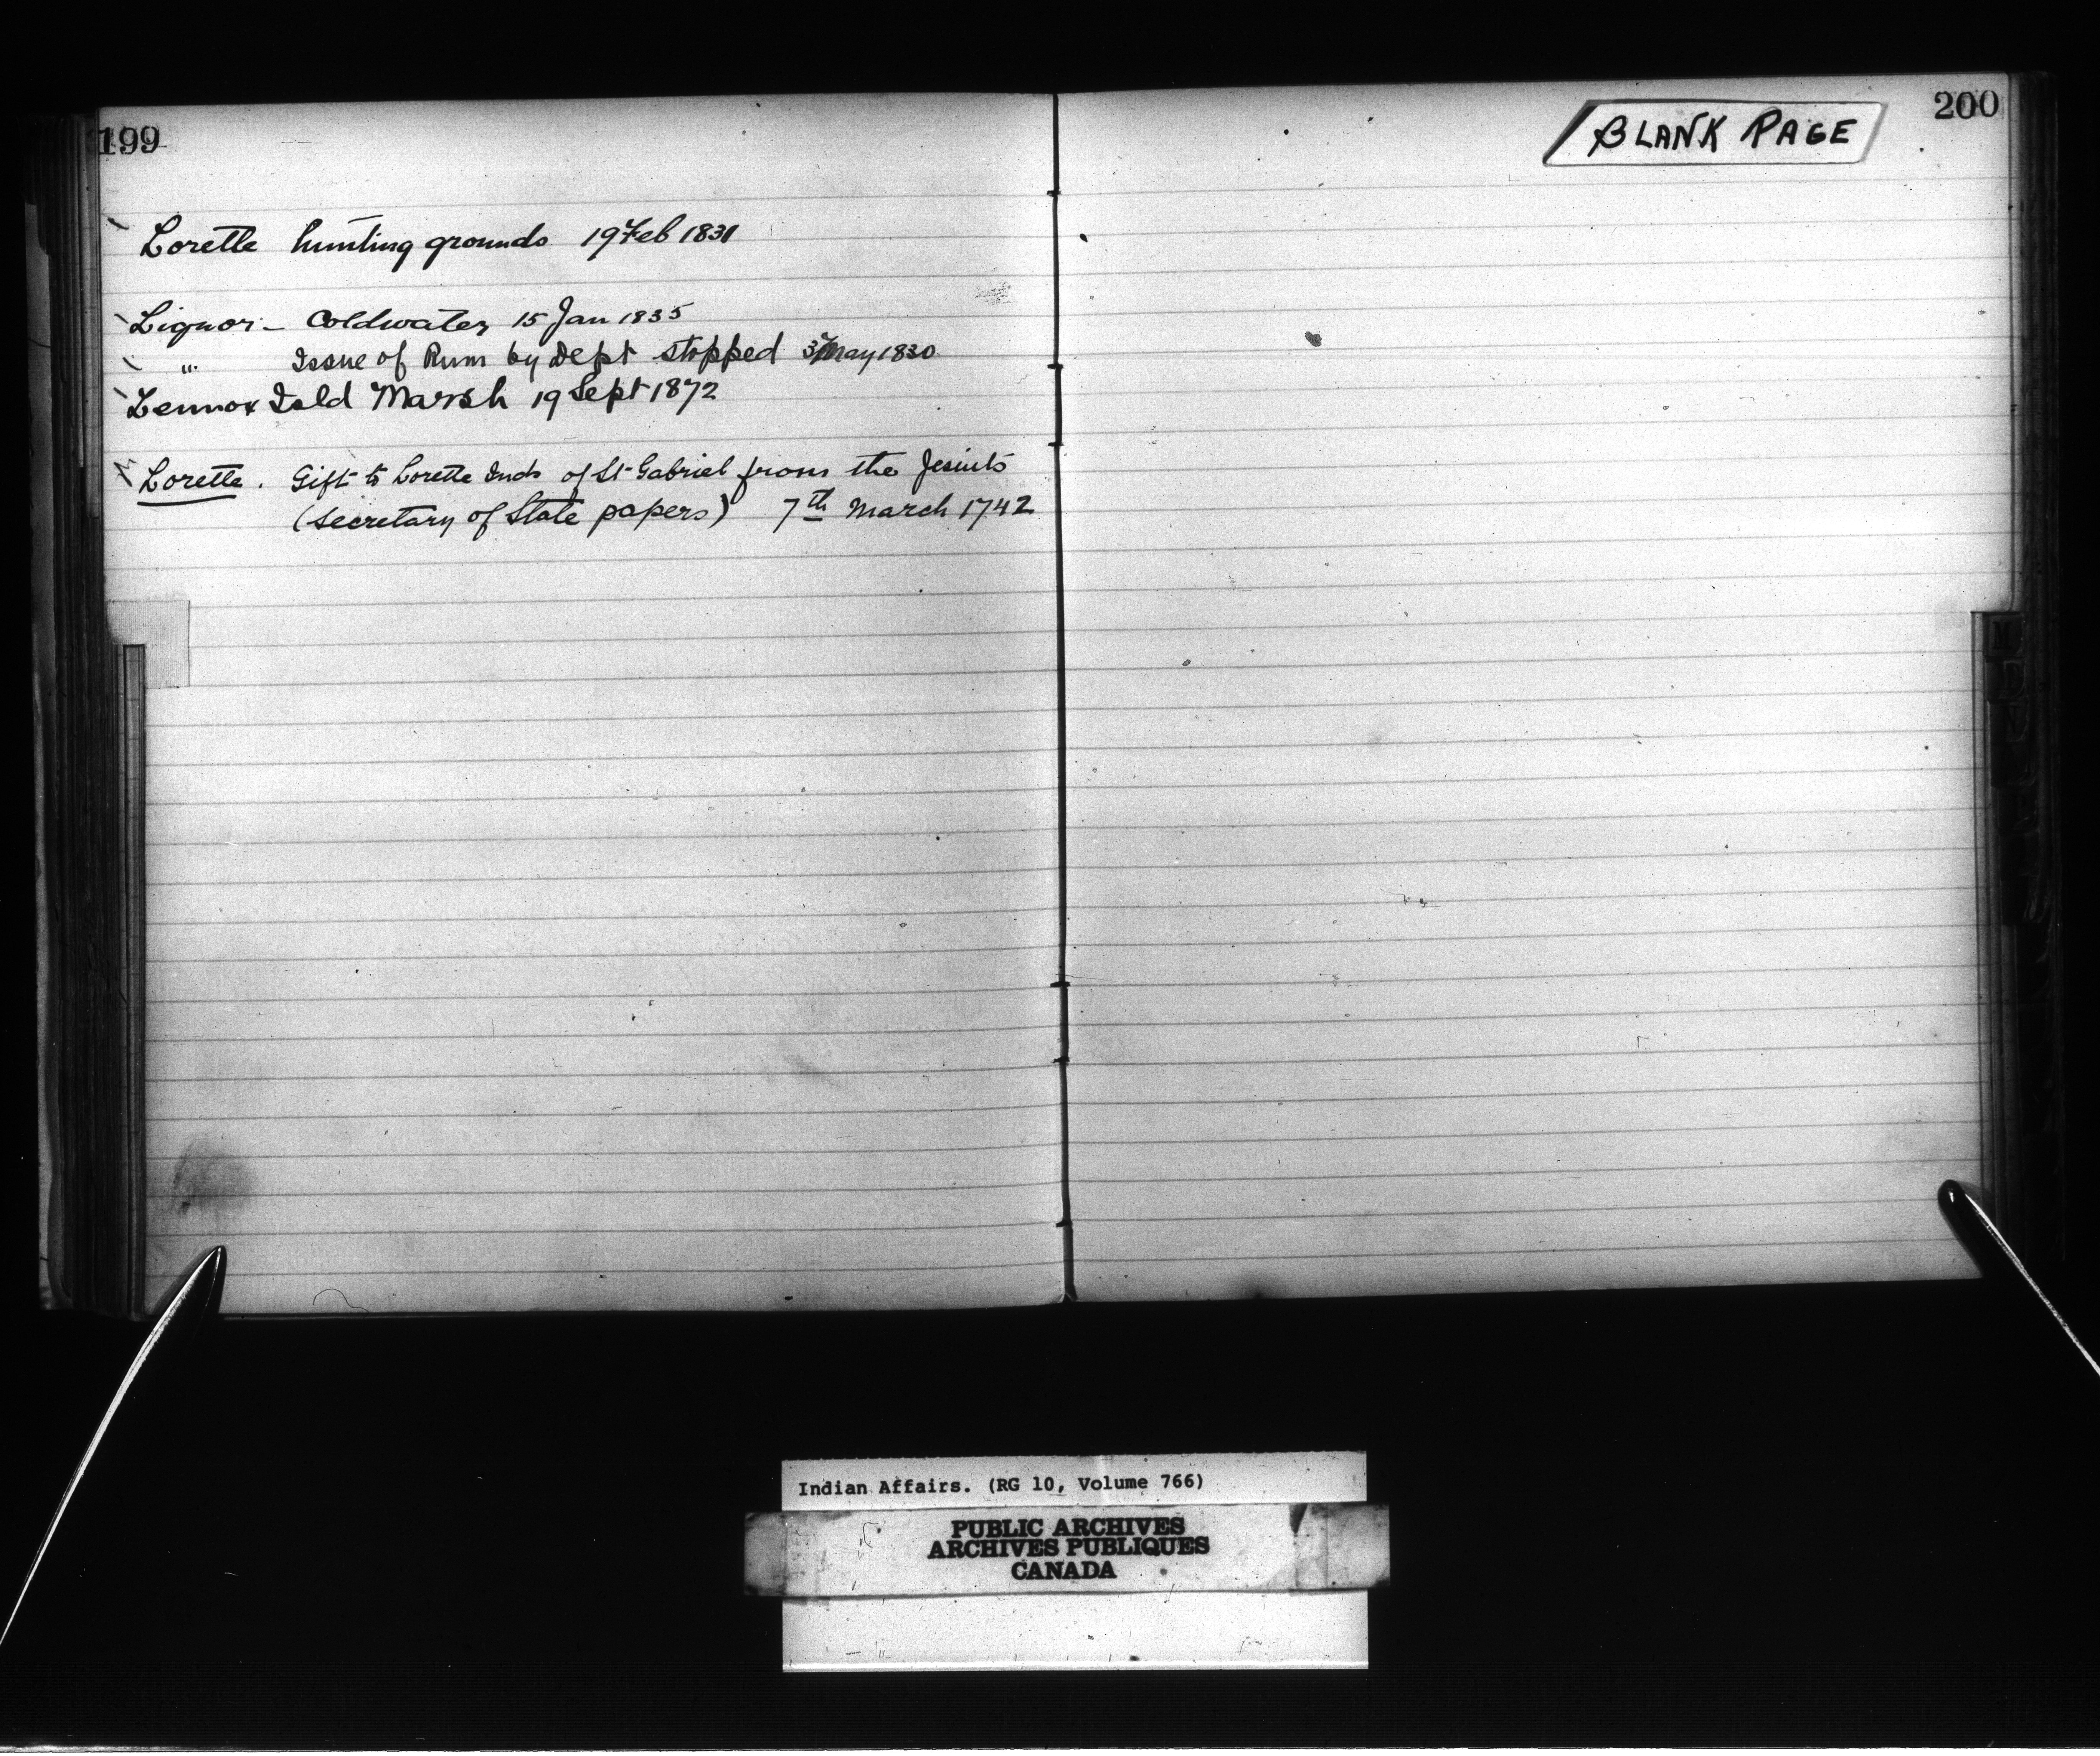 199
Lorette hunting grounds 19 Feb 1831
Liquor - Coldwater 15 Jan 1835
" Issue of Rum by Dept stopped May 1830
Lennox Isld Marsh 19 Sept 1872
Lorette. Gift to Lorette Inds of St Gabriel from the Jesuits
(Secretary of State papers) 7th March 1742
200
BLANK PAGE
Indian Affairs. (RG 10, Volume 766)
PUBLIC ARCHIVES
ARCHIVES PUBLIQUES
CANADA